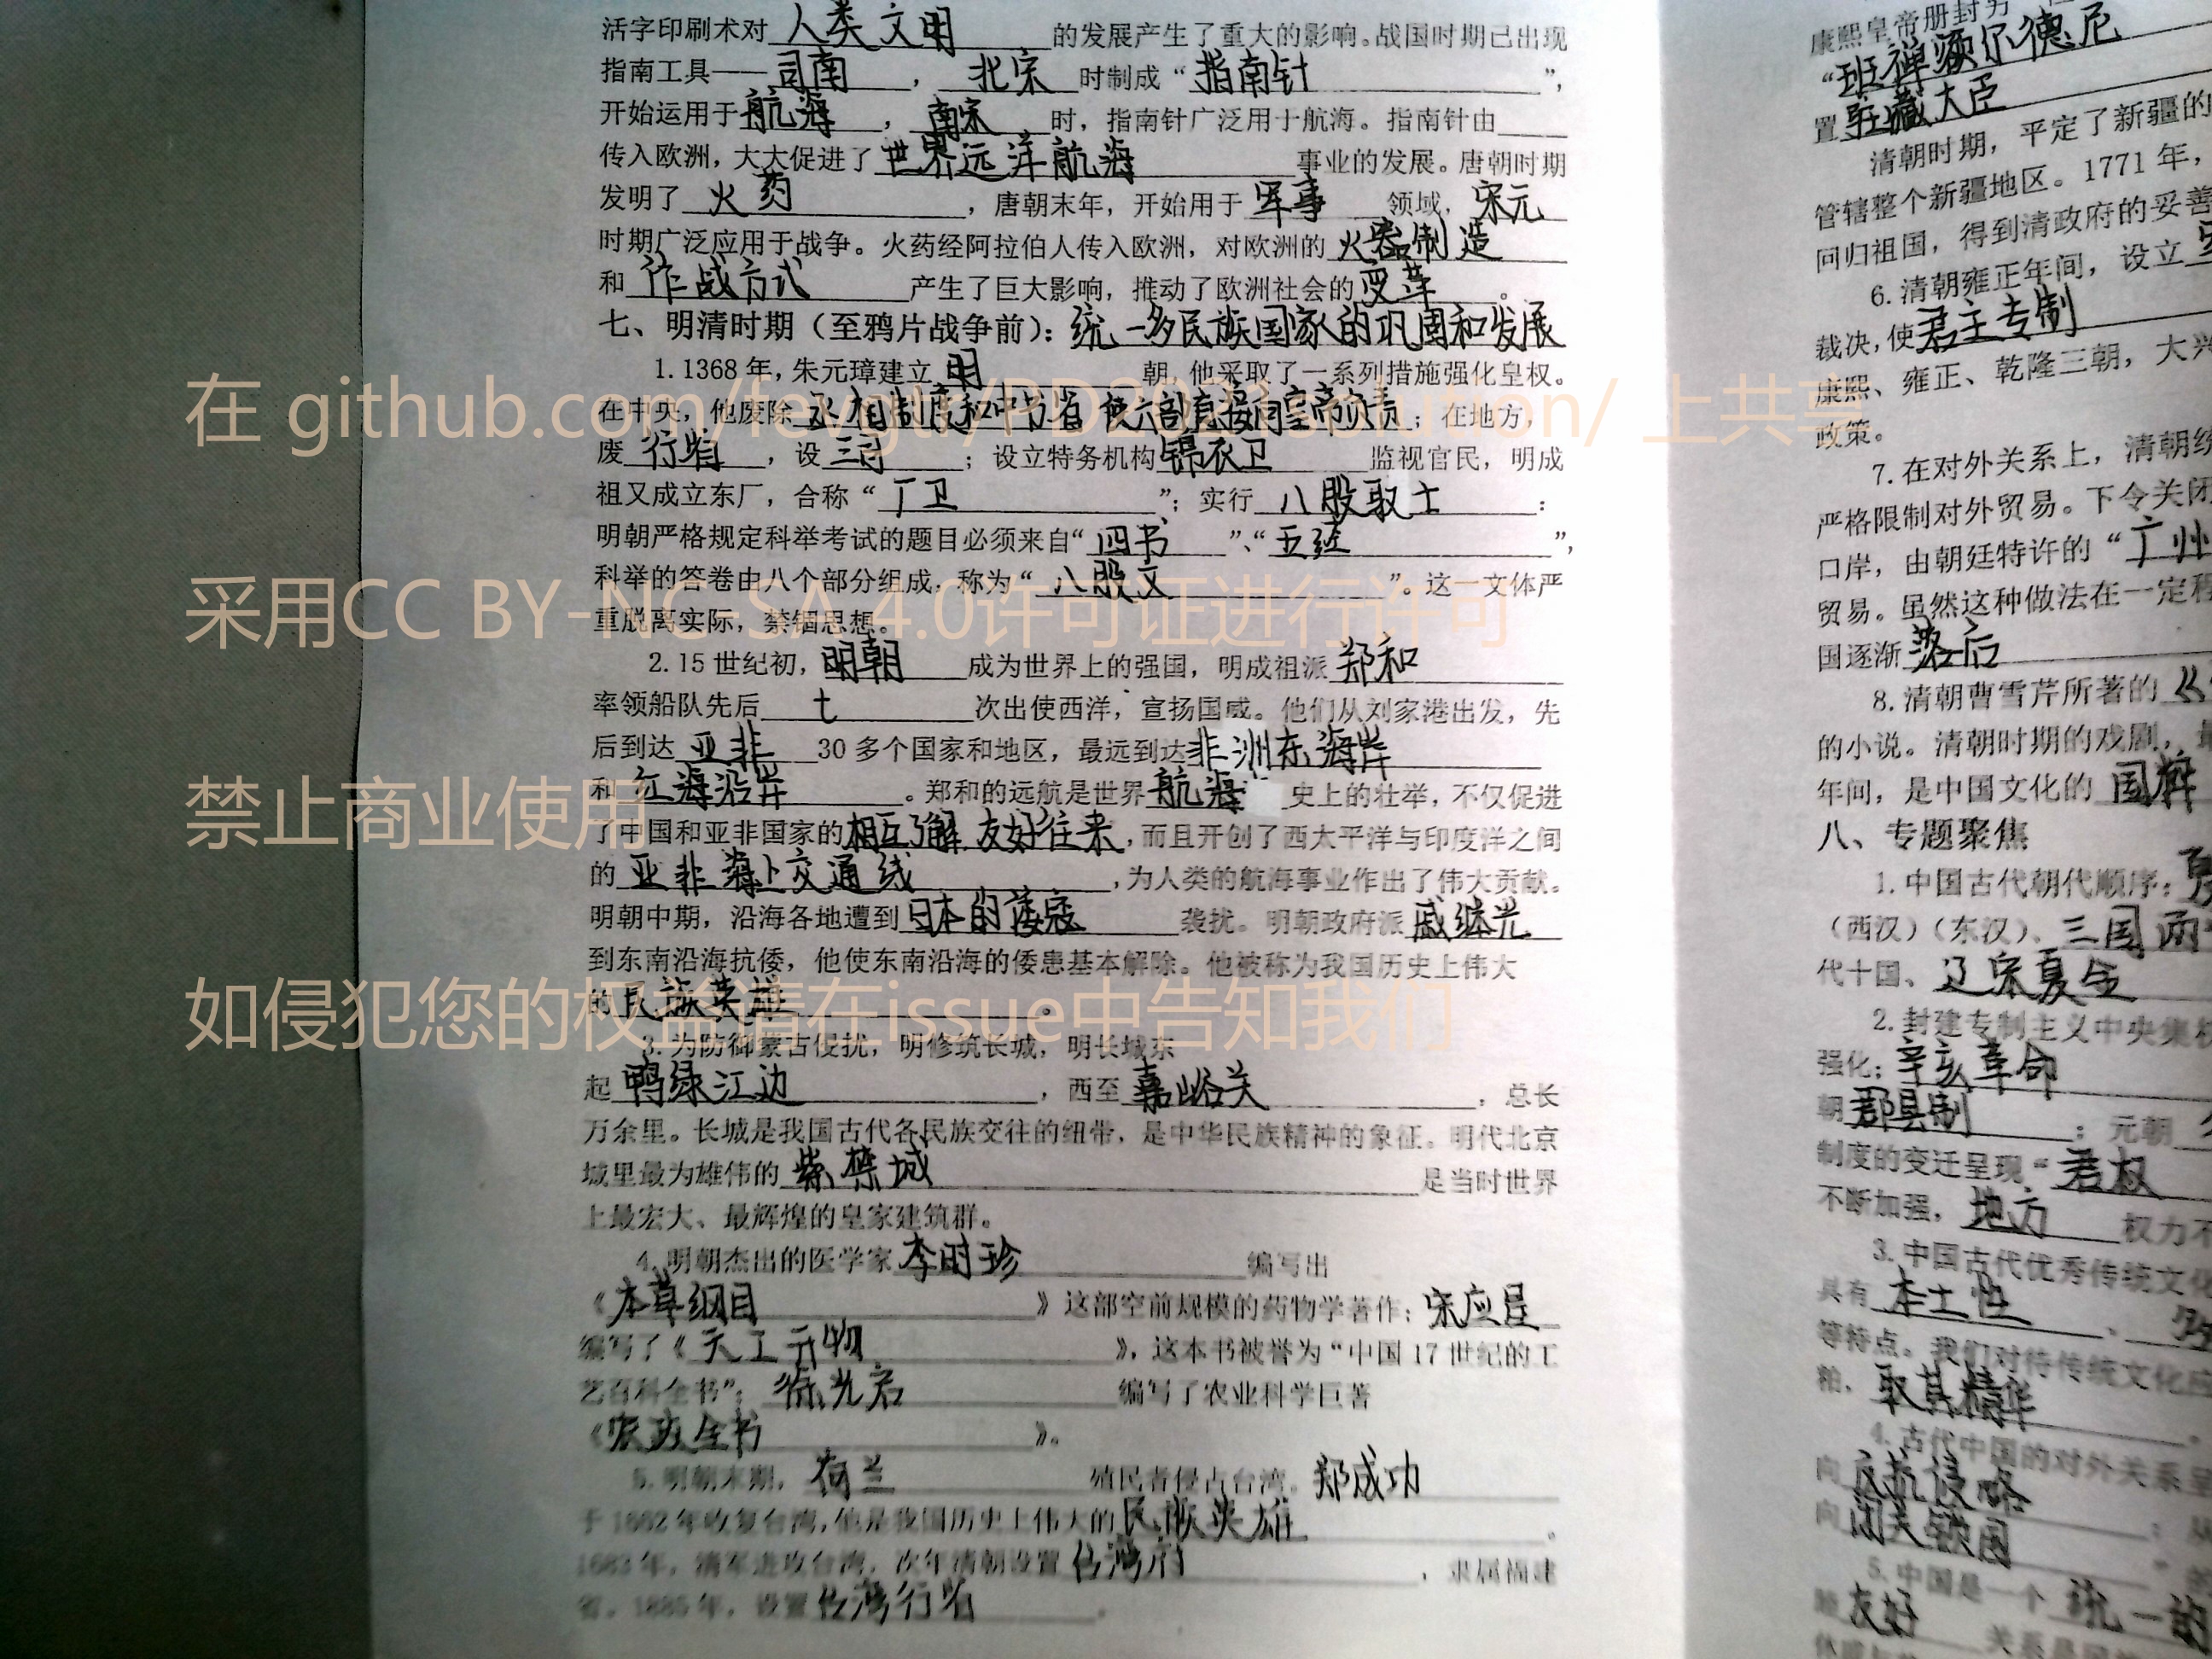 活字印刷术对 人类文明 的发展产生了重大的影响。战国时期已出现
指南工具——司南，北宋时制成“指南针”，
开始运用于航海，南宋时，指南针广泛用于航海。指南针由
传入欧洲，大大促进了世界远洋航海事业的发展。唐朝时期
发明了火药，唐朝末年，开始用于军事领域，宋元
时期广泛应用于战争。火药经阿拉伯人传入欧洲，对欧洲的火器制造
和作战方式产生了巨大影响，推动了欧洲社会的变革。
七、明清时期（至鸦片战争前）：统一多民族国家的巩固和发展
1.1368年，朱元璋建立明朝，他采取了一系列措施强化皇权。
在中央，他废除丞相制度和中书省 使六部直接向皇帝负责；在地方，
废行省，设三司；设立特务机构锦衣卫监视官民，明成
祖又成立东厂，合称“厂卫”；实行八股取士：
明朝严格规定科举考试的题目必须来自“四书”、“五经”，
科举的答卷由八个部分组成，称为“八股文”。这一文体严
重脱离实际，禁锢思想。
2.15世纪初，明朝成为世界上的强国，明成祖派郑和
率领船队先后七次出使西洋，宣扬国威。他们从刘家港出发，先
后到达亚非30多个国家和地区，最远到达非洲东海岸
和红海沿岸。郑和的远航是世界航海史上的壮举，不仅促进
了中国和亚非国家的相互了解 友好往来，而且开创了西太平洋与印度洋之间
的亚非海上交通线，为人类的航海事业作出了伟大贡献。
明朝中期，沿海各地遭到日本的倭寇袭扰。明朝政府派戚继光
到东南沿海抗倭，他使东南沿海的倭患基本解除。他被称为我国历史上伟大
的民族英雄。
3.为防御蒙古侵扰，明修筑长城，明长城东
起鸭绿江边，西至嘉峪关，总长
万余里。长城是我国古代各民族交往的纽带，是中华民族精神的象征。明代北京
城里最为雄伟的紫禁城是当时世界
上最宏大、最辉煌的皇家建筑群。
4.明朝杰出的医学家李时珍编写出
《本草纲目》这部空前规模的药物学著作；宋应星
编写了《天工开物》，这本书被誉为“中国17世纪的工
艺百科全书”；徐光启编写了农业科学巨著
《农政全书》。
5.明朝末期，荷兰殖民者侵占台湾。郑成功
于1662年收复台湾，他是我国历史上伟大的民族英雄。
1683年，清军进攻台湾，次年清朝设置台湾府，隶属福建
省。1885年，设置台湾行省。
康熙皇帝册封另
“班禅额尔德尼
置驻藏大臣
清朝时期，平定了新疆的
管辖整个新疆地区。1771年，
回归祖国，得到清政府的妥善
6.清朝雍正年间，设立
裁决，使君主专制
康熙、雍正、乾隆三朝，大兴
政策。
7.在对外关系上，清朝
严格限制对外贸易。下令关闭
口岸，由朝廷特许的“广州
贸易。虽然这种做法在一定程
国逐渐落后
8.清朝曹雪芹所著的《
的小说。清朝时期的戏剧，
年间，是中国文化的国粹
八、专题聚焦
1.中国古代朝代顺序：夏
（西汉）（东汉）、三国两
代十国、辽宋夏金
2.封建专制主义中央集权
强化；辛亥革命
朝郡县制；元朝
制度的变迁呈现“君权
不断加强，地方权力不
3.中国古代优秀传统文化
具有本土性、多
等特点。我们对待传统文化应
粕，取其精华。
4.古代中国的对外关系呈
向反抗侵略；
向闭关锁国”
5.中国是一个统一的
睦友好关系是
在 github.com/fevgtr/PD2021-solution/ 上共享
采用CC BY-NC-SA 4.0许可证进行许可
禁止商业使用
如侵犯您的权益请在issue中告知我们